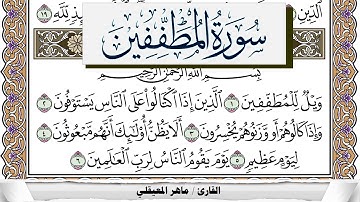 الَّذِينَ
لِلَّهِ ١٩
سُورَةُ الْمُطَفِّفِينَ
بِسْمِ اللَّهِ الرَّحْمَٰنِ الرَّحِيمِ
وَيْلٌ لِّلْمُطَفِّفِينَ ١ الَّذِينَ إِذَا اكْتَالُوا عَلَى النَّاسِ يَسْتَوْفُونَ ٢
وَإِذَا كَالُوهُمْ أَو وَّزَنُوهُمْ يُخْسِرُونَ ٣ أَلَا يَظُنُّ أُولَٰئِكَ أَنَّهُم مَّبْعُوثُونَ ٤
لِيَوْمٍ عَظِيمٍ ٥ يَوْمَ يَقُومُ النَّاسُ لِرَبِّ الْعَالَمِينَ ٦
القارئ / ماهر المعيقلي